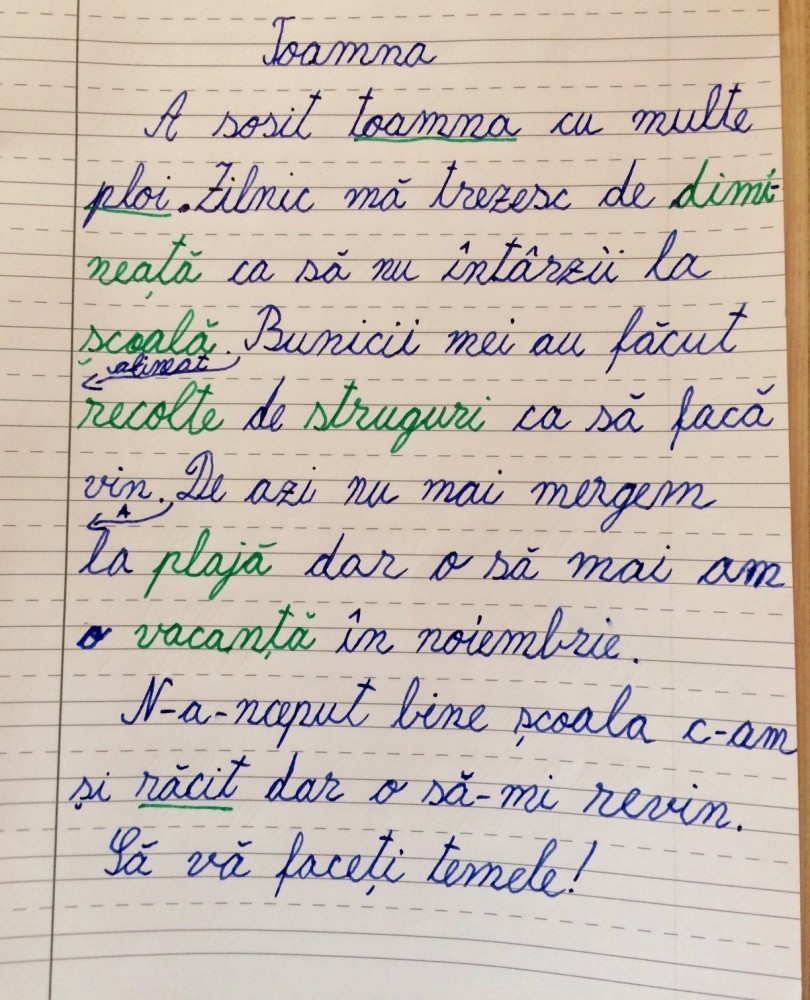 Toamna
A sosit toamna cu multe
ploi. Zilnic mă trezesc de dimi-
neață ca să nu întârzii la
școală. Bunicii mei au făcut
alineat
recolte de struguri ca să facă
vin. De azi nu mai mergem
A
la plajă dar o să mai am
o vacanță în noiembrie.
N-a-nceput bine școala c-am
și răcit dar o să-mi revin.
Să vă faceți temele!